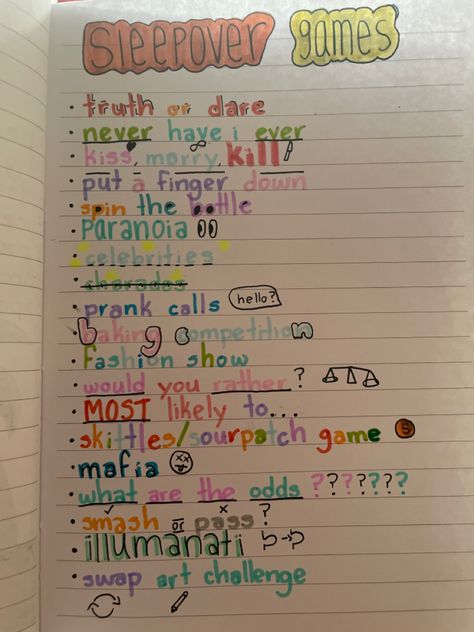 sleepover games
truth or dare
never have i ever
kiss, marry, kill
put a finger down
spin the bottle
paranoia
celebrities
charades
prank calls hello?
baking competition
fashion show
would you rather?
MOST likely to...
skittles/sourpatch game S
mafia
what are the odds ???????
smash or pass?
illumanati
swap art challenge